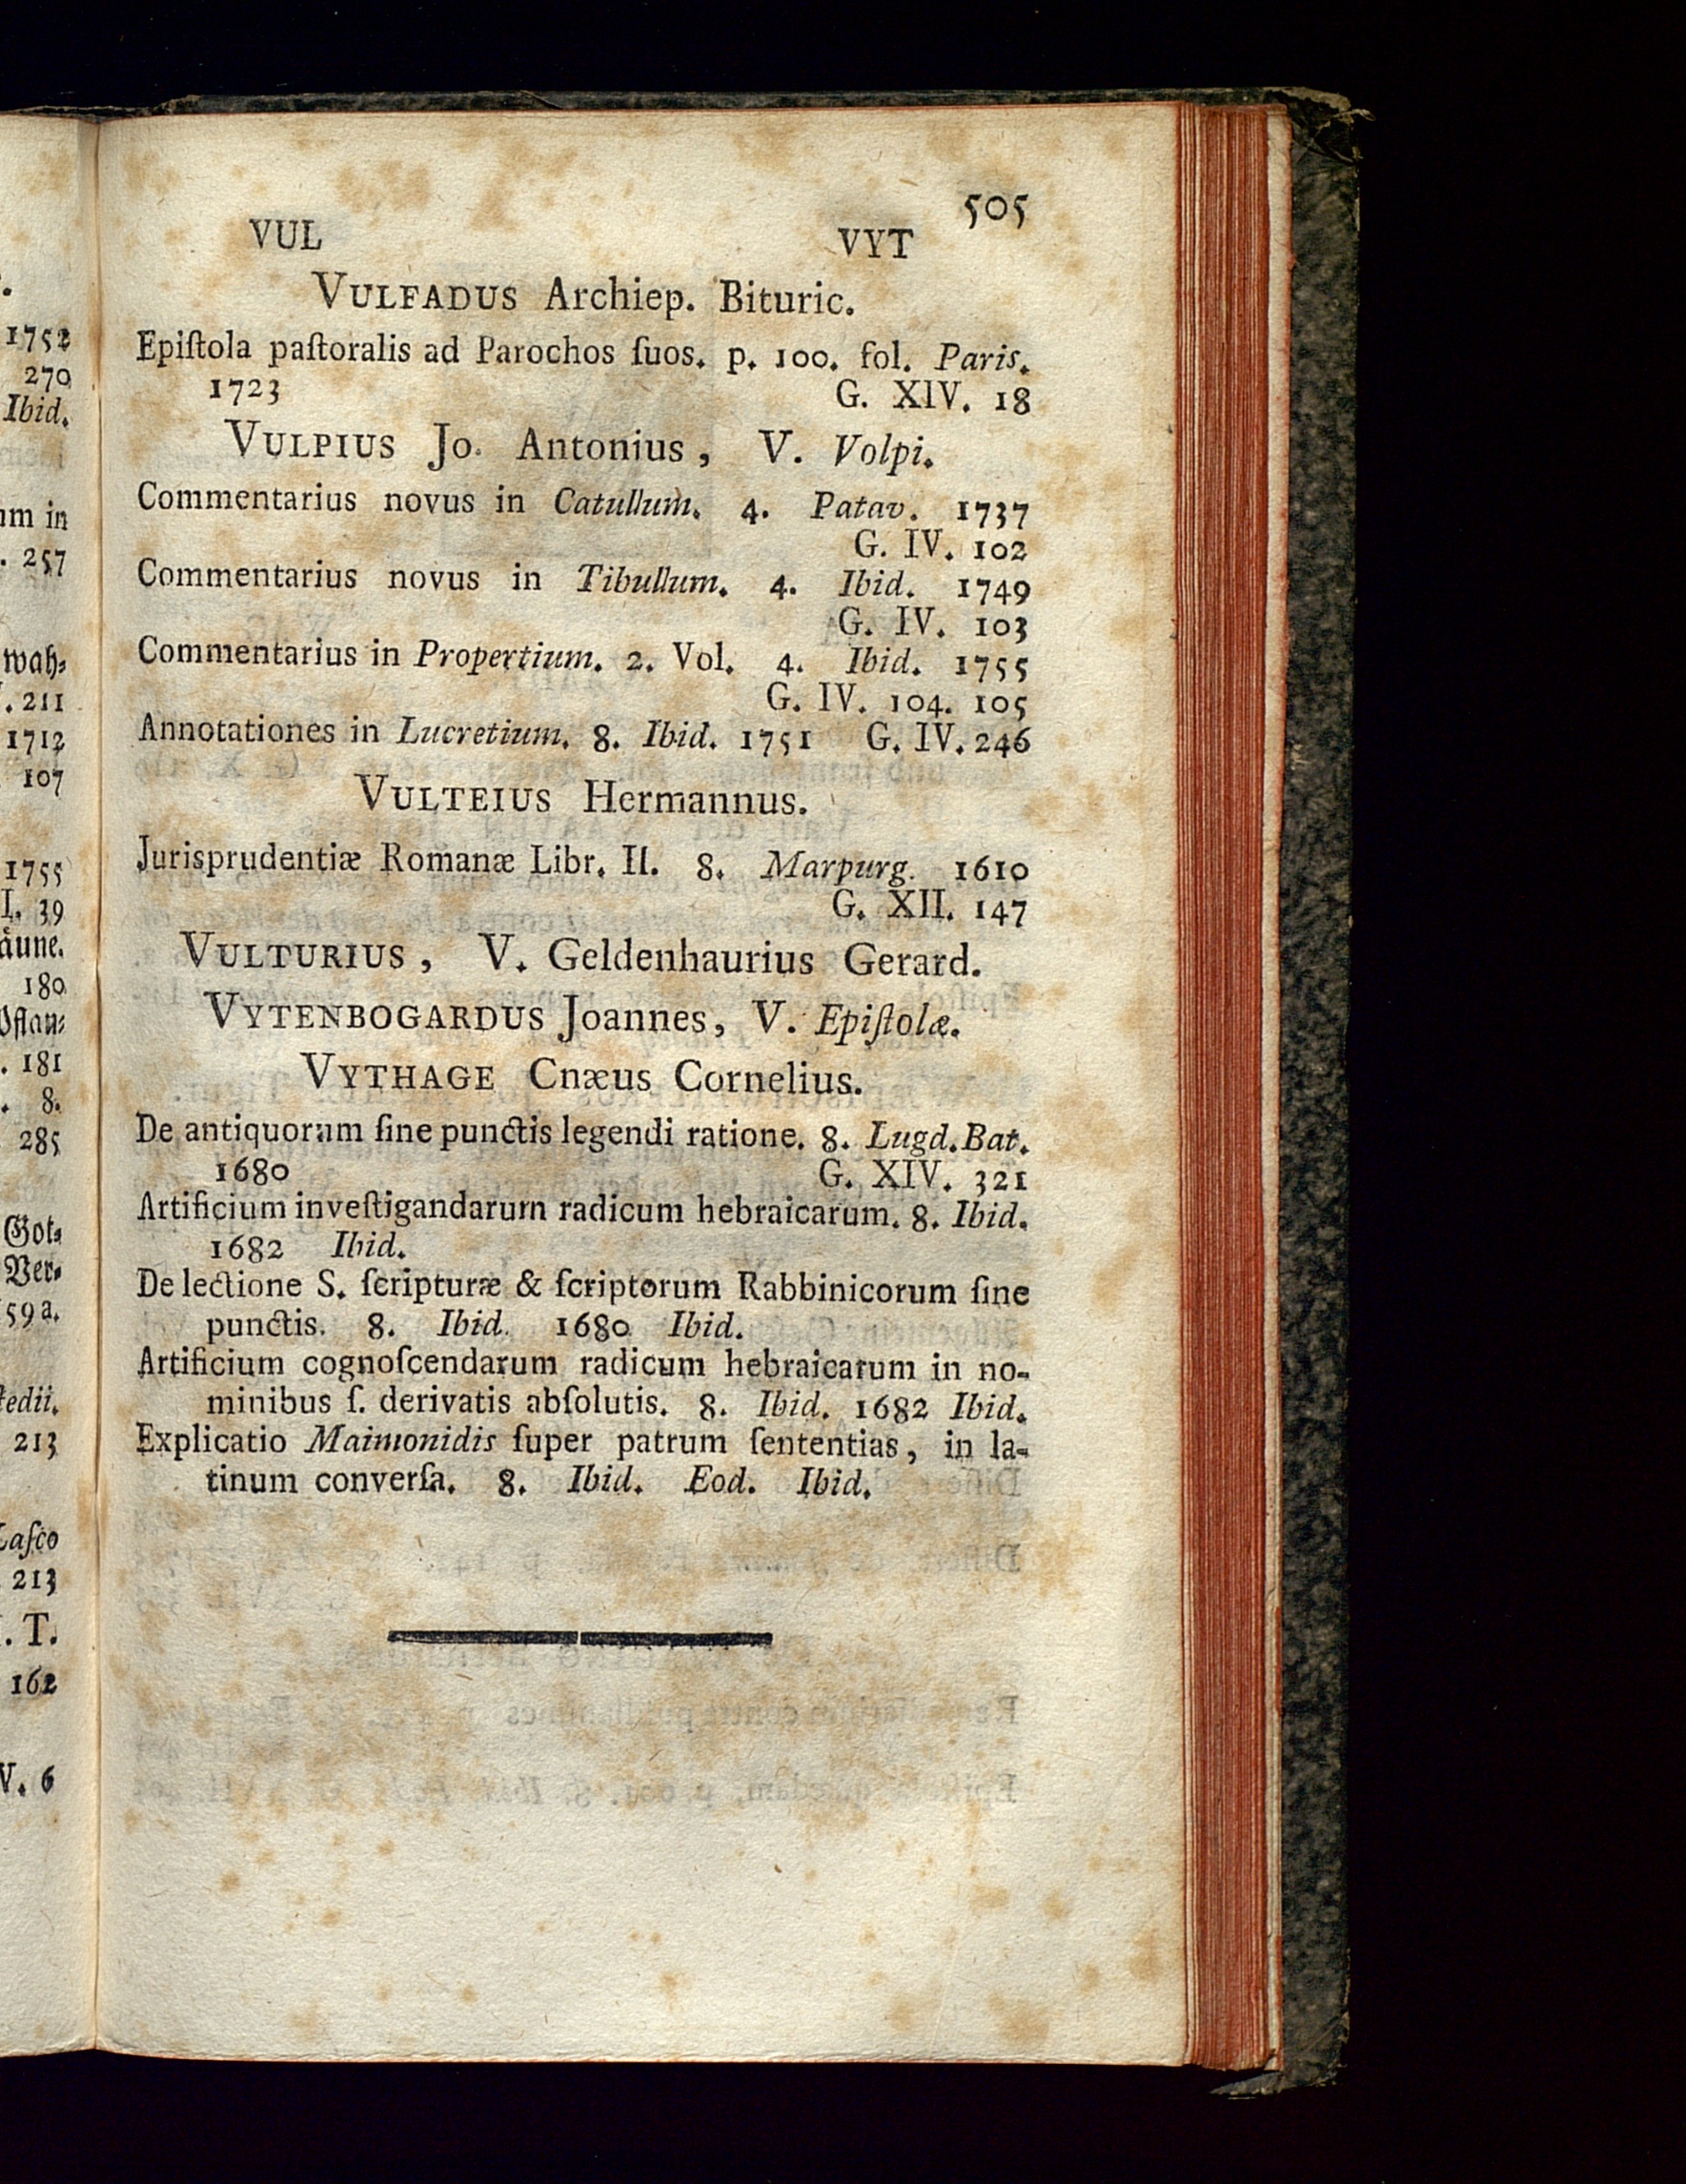 505
VUL VYT
VULFADUS Archiep. Bituric.
Epiſtola paſtoralis ad Parochos ſuos. p. 100. fol. Paris.
1723 G. XIV. 18
VULPIUS Jo. Antonius, V. Volpi.
Commentarius novus in Catullum. 4. Patav. 1737
G. IV. 102
Commentarius novus in Tibullum. 4. Ibid. 1749
G. IV. 103
Commentarius in Propertium. 2. Vol. 4. Ibid. 1755
G. IV. 104. 105
Annotationes in Lucretium. 8. Ibid. 1751 G. IV. 246
VULTEIUS Hermannus.
Jurisprudentiæ Romanæ Libr. II. 8. Marpurg. 1610
G. XII. 147
VULTURIUS, V. Geldenhaurius Gerard.
VYTENBOGARDUS Joannes, V. Epiſtolæ.
VYTHAGE Cnæus Cornelius.
De antiquorum ſine punctis legendi ratione. 8. Lugd. Bat.
1680 G. XIV. 321
Artificium inveſtigandarum radicum hebraicarum. 8. Ibid.
1682 Ibid.
De lectione S. ſcripturæ & ſcriptorum Rabbinicorum ſine
punctis. 8. Ibid. 1680 Ibid.
Artificium cognoſcendarum radicum hebraicarum in no-
minibus ſ. derivatis abſolutis. 8. Ibid. 1682 Ibid.
Explicatio Maimonidis ſuper patrum ſententias, in la-
tinum converſa. 8. Ibid. Eod. Ibid.
1752
270
Ibid.
in
. 257
wah-
. 211
1712
107
1755
I. 39
180
. 181
. 8.
285
Got-
Ver-
59 a.
213
213
. T.
162
V. 6